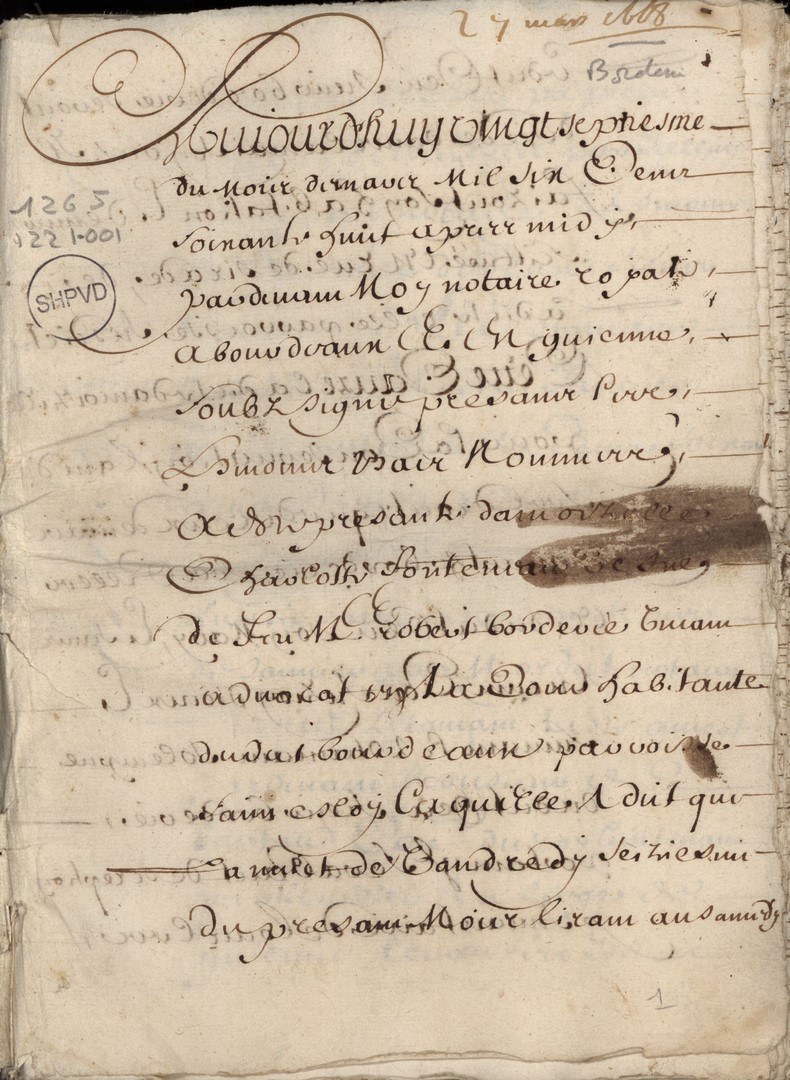 27 mars 1668
Borderie
Aujourdhuy vingt septiesme
du mois de mars mil six cens
soixante huit apres midy
pardevant moy notaire royal
a bourdeaux et en guienne
soubz signé presans les
tesmoins bas nommes
a esté presante damoizelle
Charlotte Fonteneau vefve
de feu Me robert borderie vivant
advocat en la Cour habitante
dudat bourdeaux parroisse
saint esloy Laquelle a dit que
la nuict de Vandredy seiziesme
du presant mois tirant au samedy
1265
1221-001
SHPVD
1